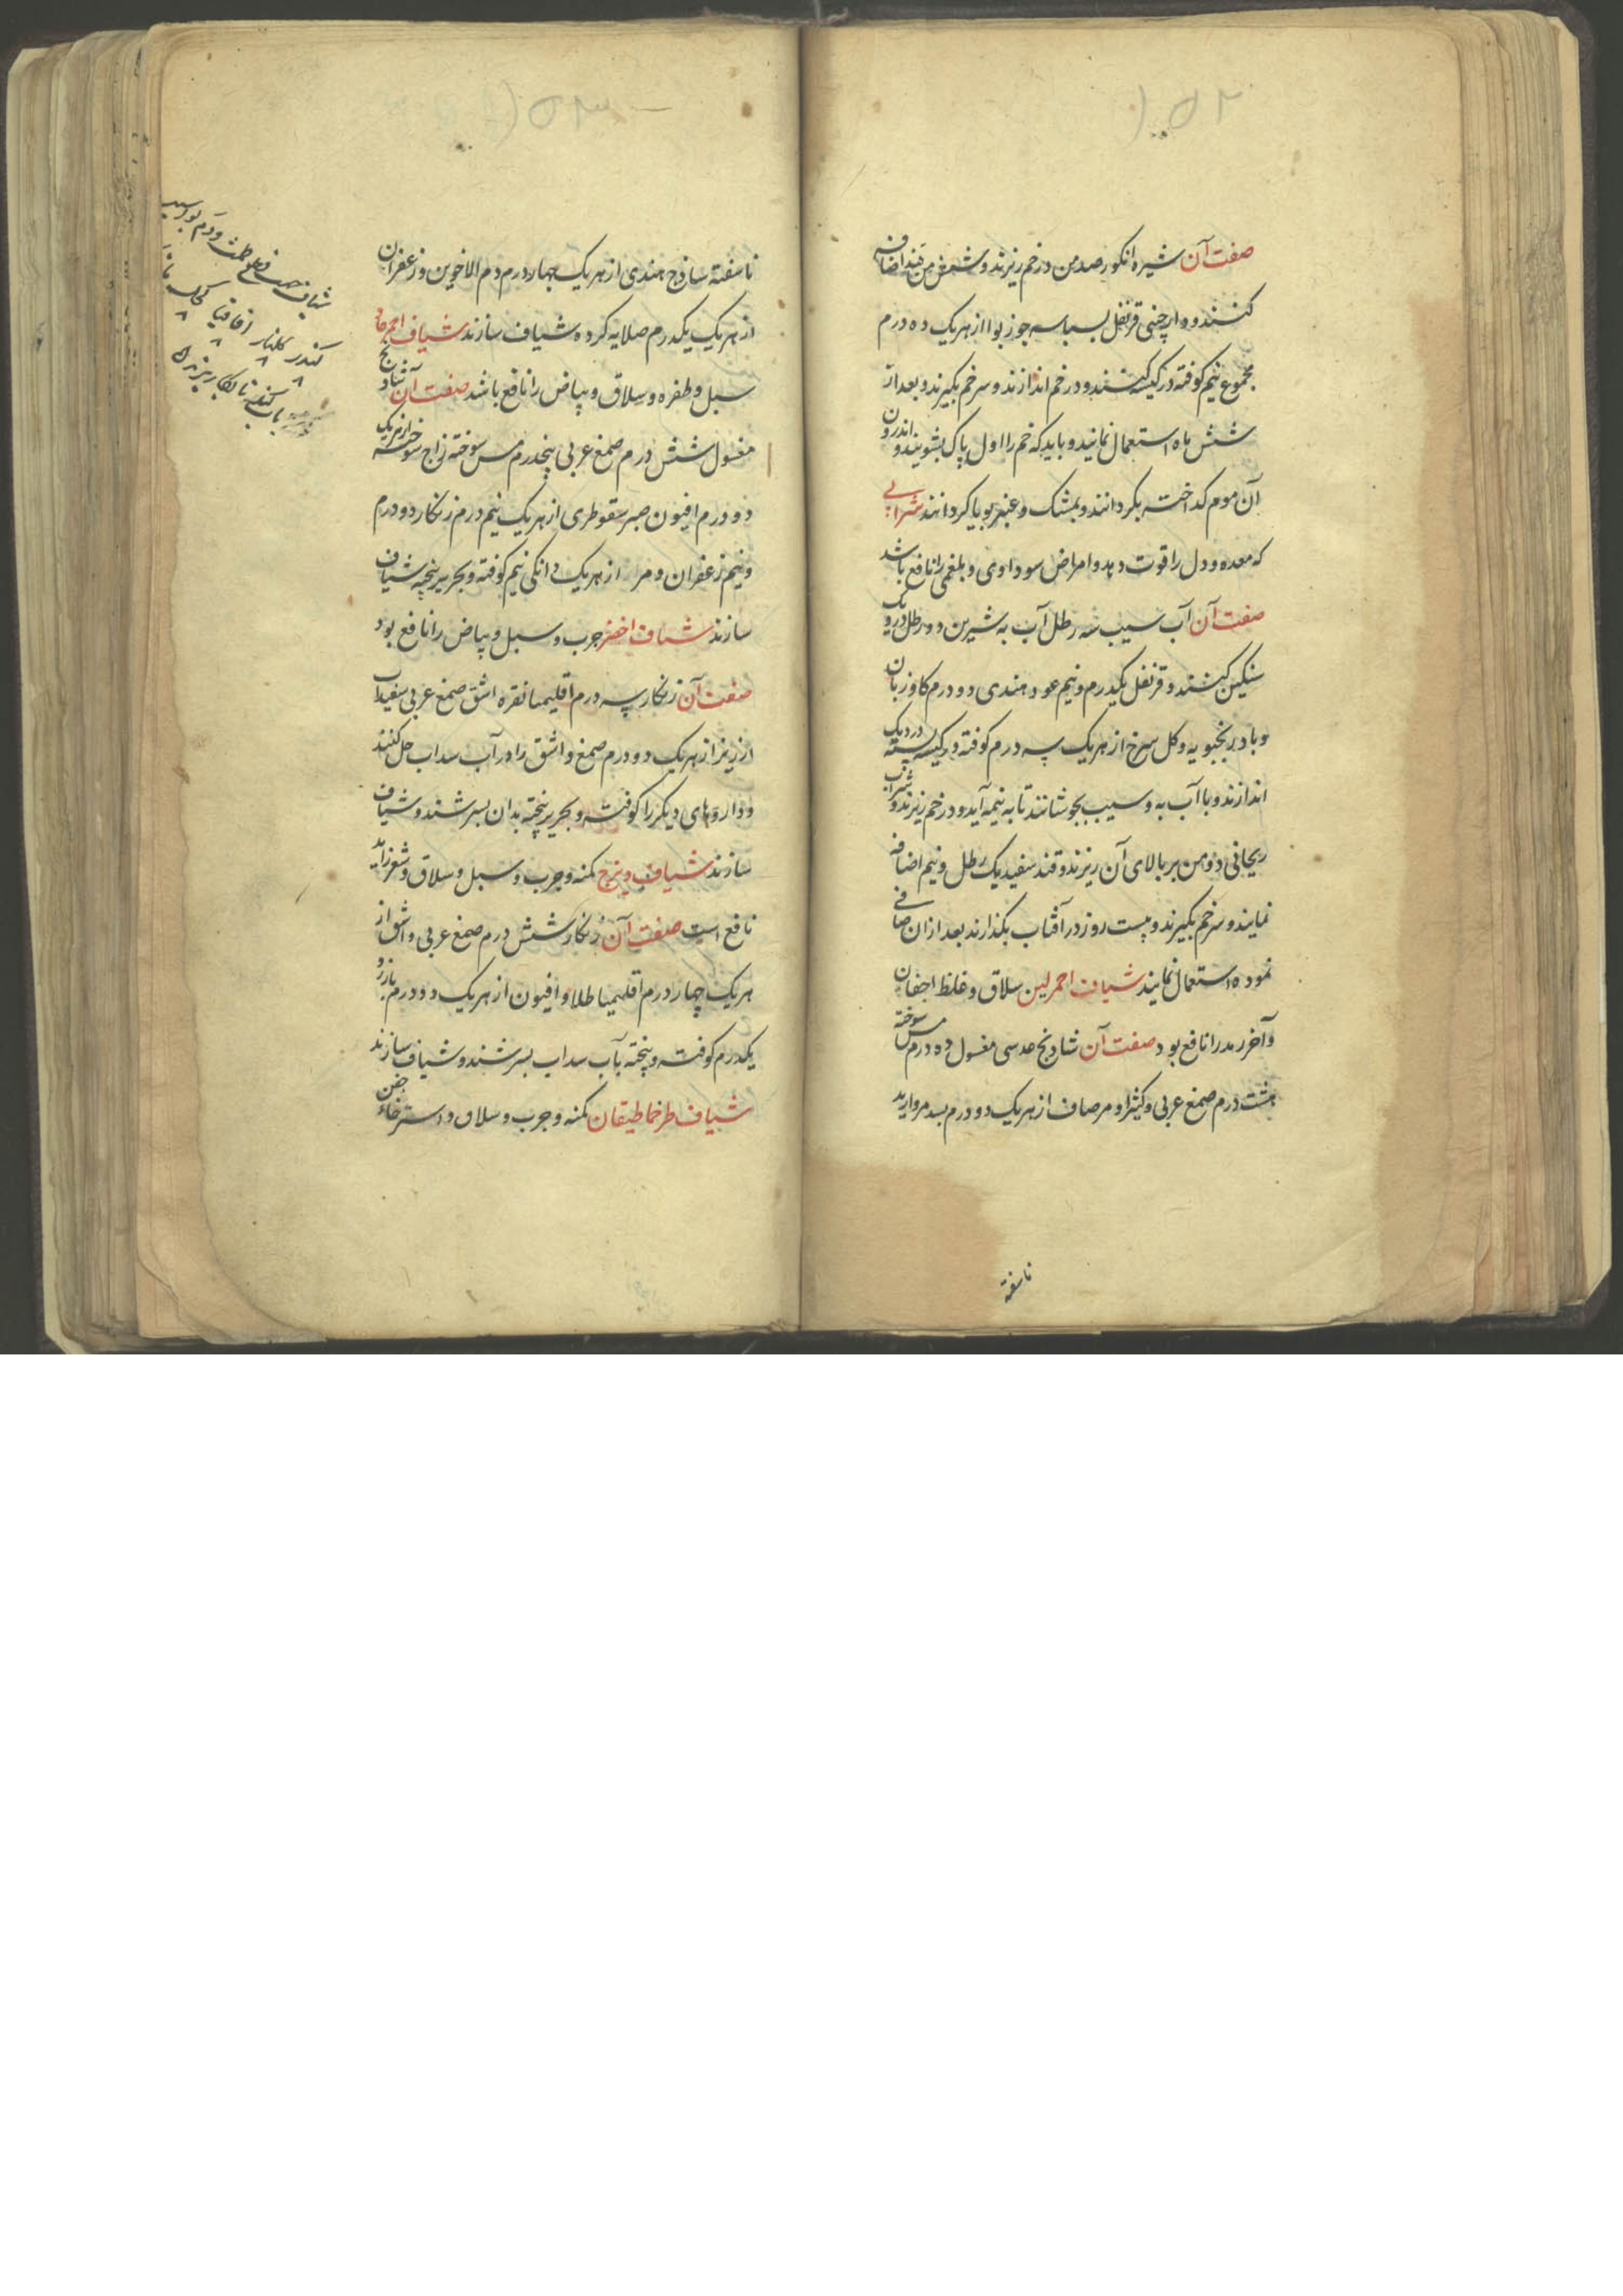 ۱۵۲
صفت آن شیره انکور صد من در خم ریزند و شش من قند اضافه
کنند و دارچینی قرنفل بسباسه جوز بوا از هر یک ده درم
مجموع نیم کوفته در کیسه کنند و در خم اندازند و سر خم بگیرند و بعد از
شش ماه استعمال نمایند و باید که خم را اول پاک بشویند و اندرون
آن موم کداخته بکردانند و بمشک و عنبر بویا کردانند شرابی
که معده و دل را قوت دهد و امراض سوداوی و بلغمی را نافع باشد
صفت آن آب سیب سه رطل آب به شیرین دو رطل در دیک
سنکین کنند و قرنفل یکدرم و نیم عود هندی دو درم کاوزبان
و بادرنجبویه و کل سرخ از هر یک سه درم کوفته در کیسه بسته در دیک
اندازند و با آب به و سیب بجوشانند تا به نیمه آید و در خم ریزند و شراب
ریحانی دو من بر بالای آن ریزند و قند سفید یک رطل و نیم اضافه
نمایند و سر خم بگیرند و بیست روز در آفتاب بکذارند بعد از ان صافی
نموده استعمال نمایند شیاف احمر لین سلاق و غلظ اجفان
و آخر رمد را نافع بود صفت آن شادنج عدسی مغسول ده درم مس سوخته
هشت درم صمغ عربی و کثیرا و مر صاف از هر یک دو درم بسد مروارید
ناسفته
۱۵۳
ناسفته ساذج هندی از هر یک چهار درم دم الاخوین و زعفران
از هر یک یکدرم صلایه کرده شیاف سازند شیاف احمر حاد
سبل و ظفره و سلاق و بیاض را نافع باشد صفت آن شادنج
مغسول شش درم صمغ عربی پنجدرم مس سوخته زاج سوخته از هر یک
دو درم افیون صبر سقوطری از هر یک نیم درم زنکار دو درم
و نیم زعفران و مر از هر یک دانکی نیم کوفته و بحریر بیخته شیاف
سازند شیاف اخضر جرب و سبل و بیاض را نافع بود
صفت آن زنکار سه درم اقلیمیا نقره اشق صمغ عربی سفیداب
ارزیز از هر یک دو درم صمغ و اشق را در آب سداب حل کنند
و داروهای دیکر را کوفته و بحریر بیخته بدان بسرشند و شیاف
سازند شیاف دیزج کمنه و جرب و سبل و سلاق و شعر زاید
نافع است صفت آن زنکار شش درم صمغ عربی و اشق از
هر یک چهار درم اقلیمیا طلا و افیون از هر یک دو درم بارزد
یکدرم کوفته و بیخته بآب سداب بسرشند و شیاف سازند
شیاف طرخماطیقان کمنه و جرب و سلاق و استرخاء جفن
کندر کلنار اقاقیا